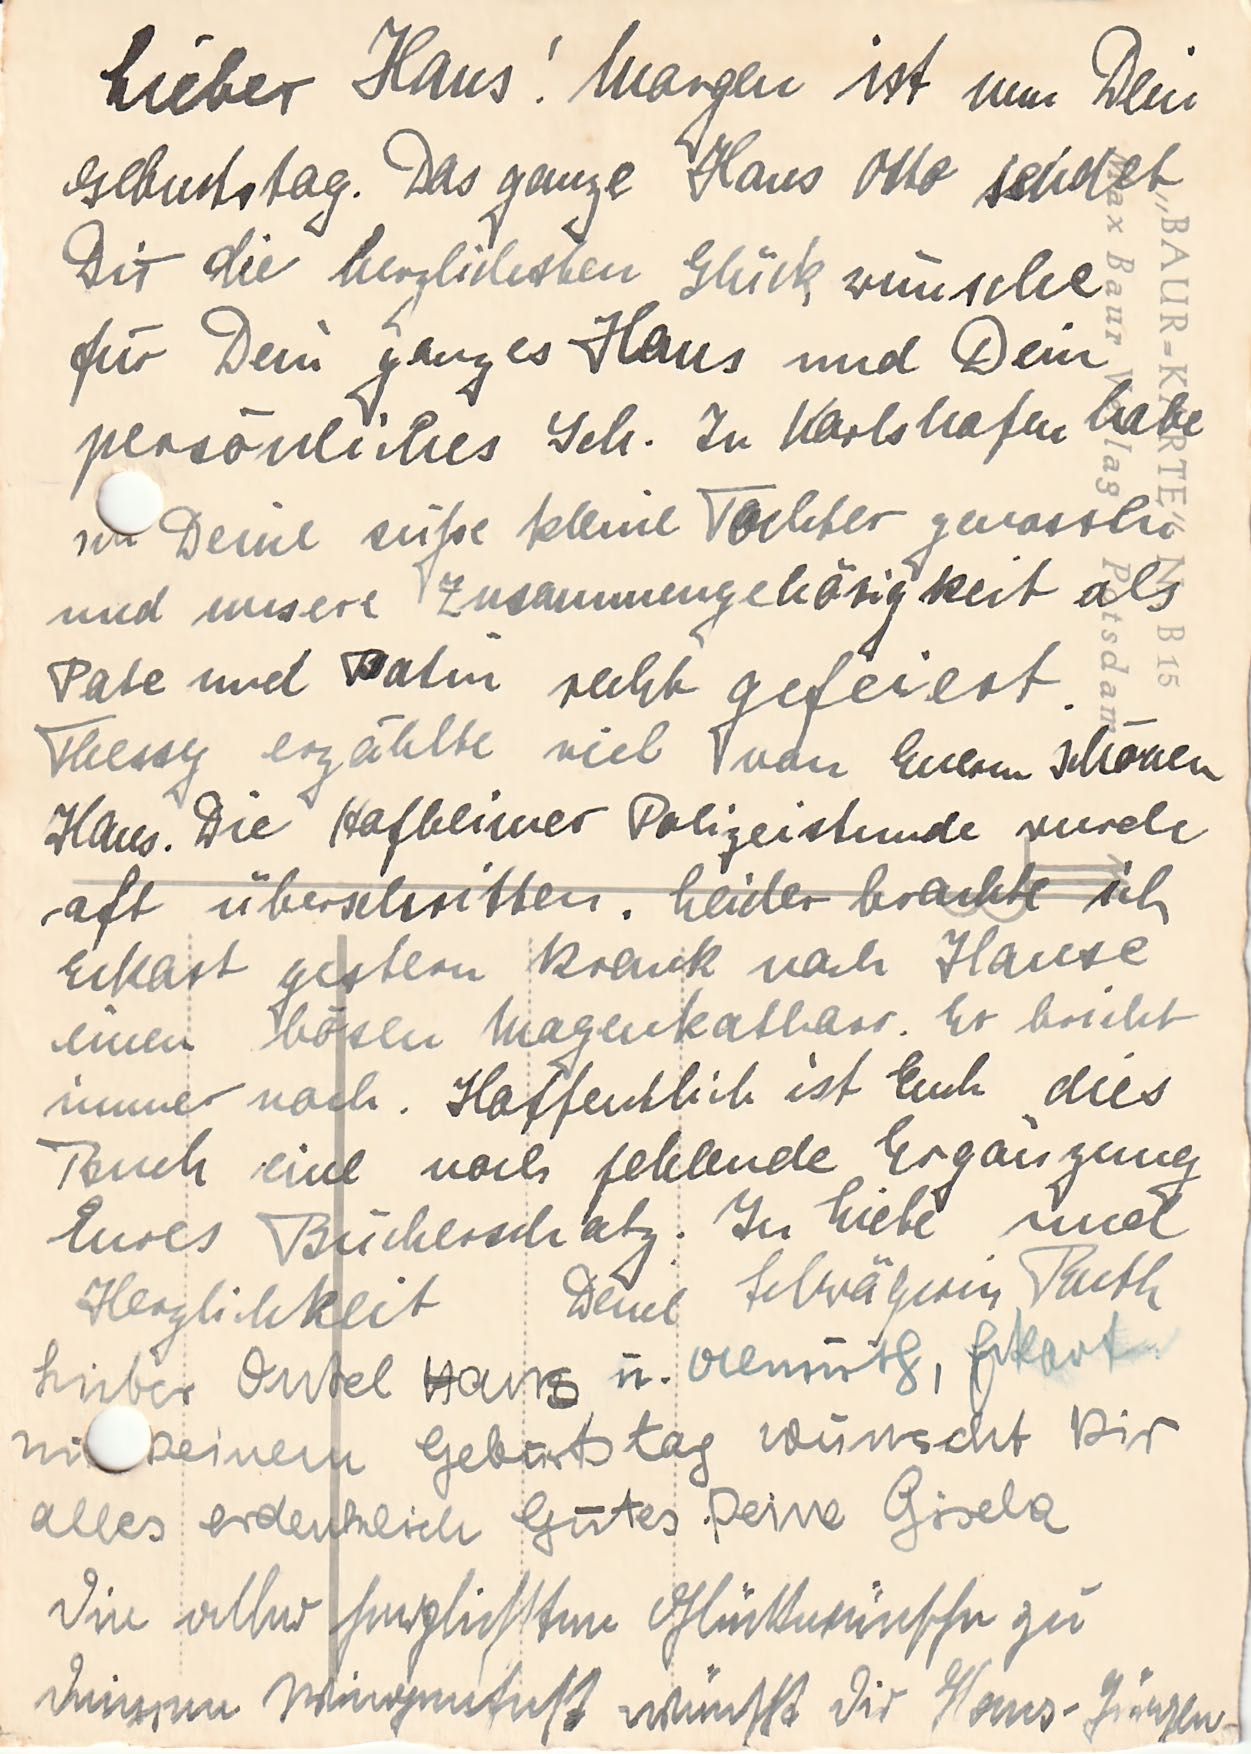 Lieber Hans! Morgen ist nun Dein
Geburtstag. Das ganze Haus Otto sendet
Dir die herzlichsten Glückwünsche
für Dein ganzes Haus und Dein
persönliches Ich. In Karlshafen habe
Deine süße kleine Tochter genossen
und unsere Zusammengehörigkeit als
Pate und Patin recht gefeiert.
Thessy erzählte viel von Euerm schönen
Haus. Die Hofheimer Polizeistunde wurde
oft überschritten. Leider brachte ich
Eckart gestern krank nach Hause
einen bösen Magenkatharr. Er bricht
immer noch. Hoffentlich ist Euch dies
Buch eine noch fehlende Ergänzung
Eures Bücherschatz. In Liebe und
Herzlichkeit Deine Schwägerin Ruth
Lieber Onkel Hans u. Almuth, Eckart
Deinem Geburtstag wünscht Dir
alles erdenklich Gutes Deine Gisela
Die aller herzlichsten Glückwünsche zu
Deinem Wiegenfest wünscht Dir Hans-Jürgen
„BAUR-KARTE" Nr B 15
Max Baur Verlag Potsdam